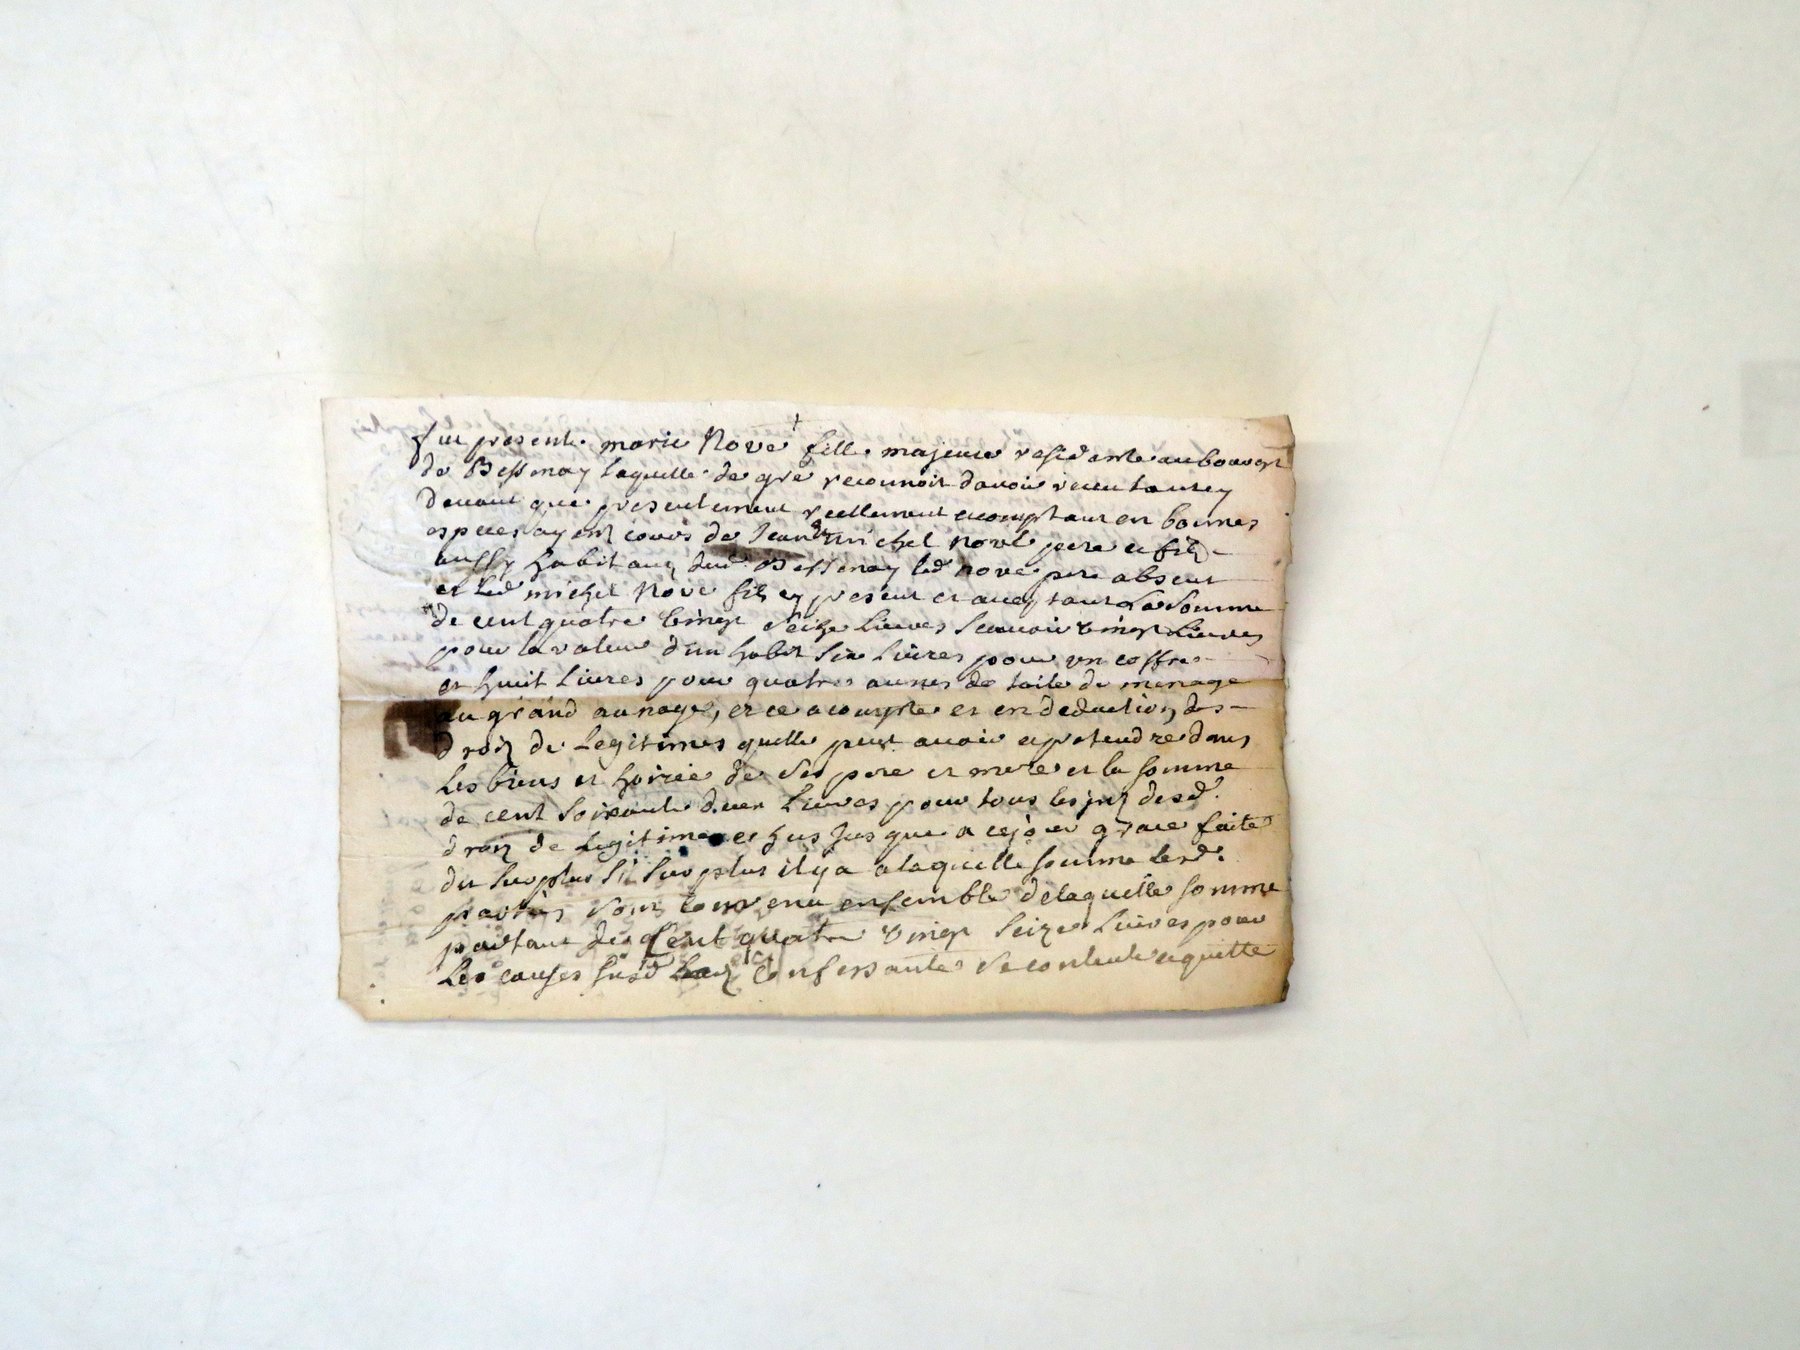 fut presente marie Nove fille majeure residante au bourg
de Bessenay laquelle de gré reconnoit davoir receu tant cy
devant que presentement reellement a comptant en bonnes
especes ayent cours de Jean & michel Nove pere et fils
aussy habitans dud. Bessenay led nove pere absent
et led michel Nove fils cy present et acceptant La Somme
de cent quatre vingt Seize Livres Scavoir vingt Livres
pour la valeur dun habit Six livres pour un coffre
et huit livres pour quatre aunes de toile de menage
au grand aunage, et ce a compte et en deduction des
droiz de Legitimes quelle peut avoir a pretendre dans
les biens et hoirie de Ses pere et mere et la somme
de cent soixante deux Livres pour tous les jntz desd.
droiz de Legitime eschus jusque a ce jour grace faite
du Surplus Si Surplus il y a a laquelle somme lesd.
parties Sont convenu ensemble de laquelle somme
partant de Cent quatre vingt Seize Livres pour
Les causes Susd confessante Se contente a quitte